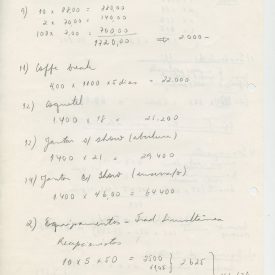 9) 10 x 88,00 = 880,00
2 x 70,00 = 140,00
100 x 7,00 = 700,00
1720,00 => 2000-
11) Coffe break
400 x 1100 x 5 dias = 22.000
12) Coquetel
1.400 x 18 = 21.200
13) Jantar s/ show (abertura)
1400 x 21 = 29.400
14) Jantar c/ show
1.400 x 46,00 = 64.400
2) Equipamentos - Trad Simultânea
Receptores
10 x 5 x 50 = 2500 } 2625